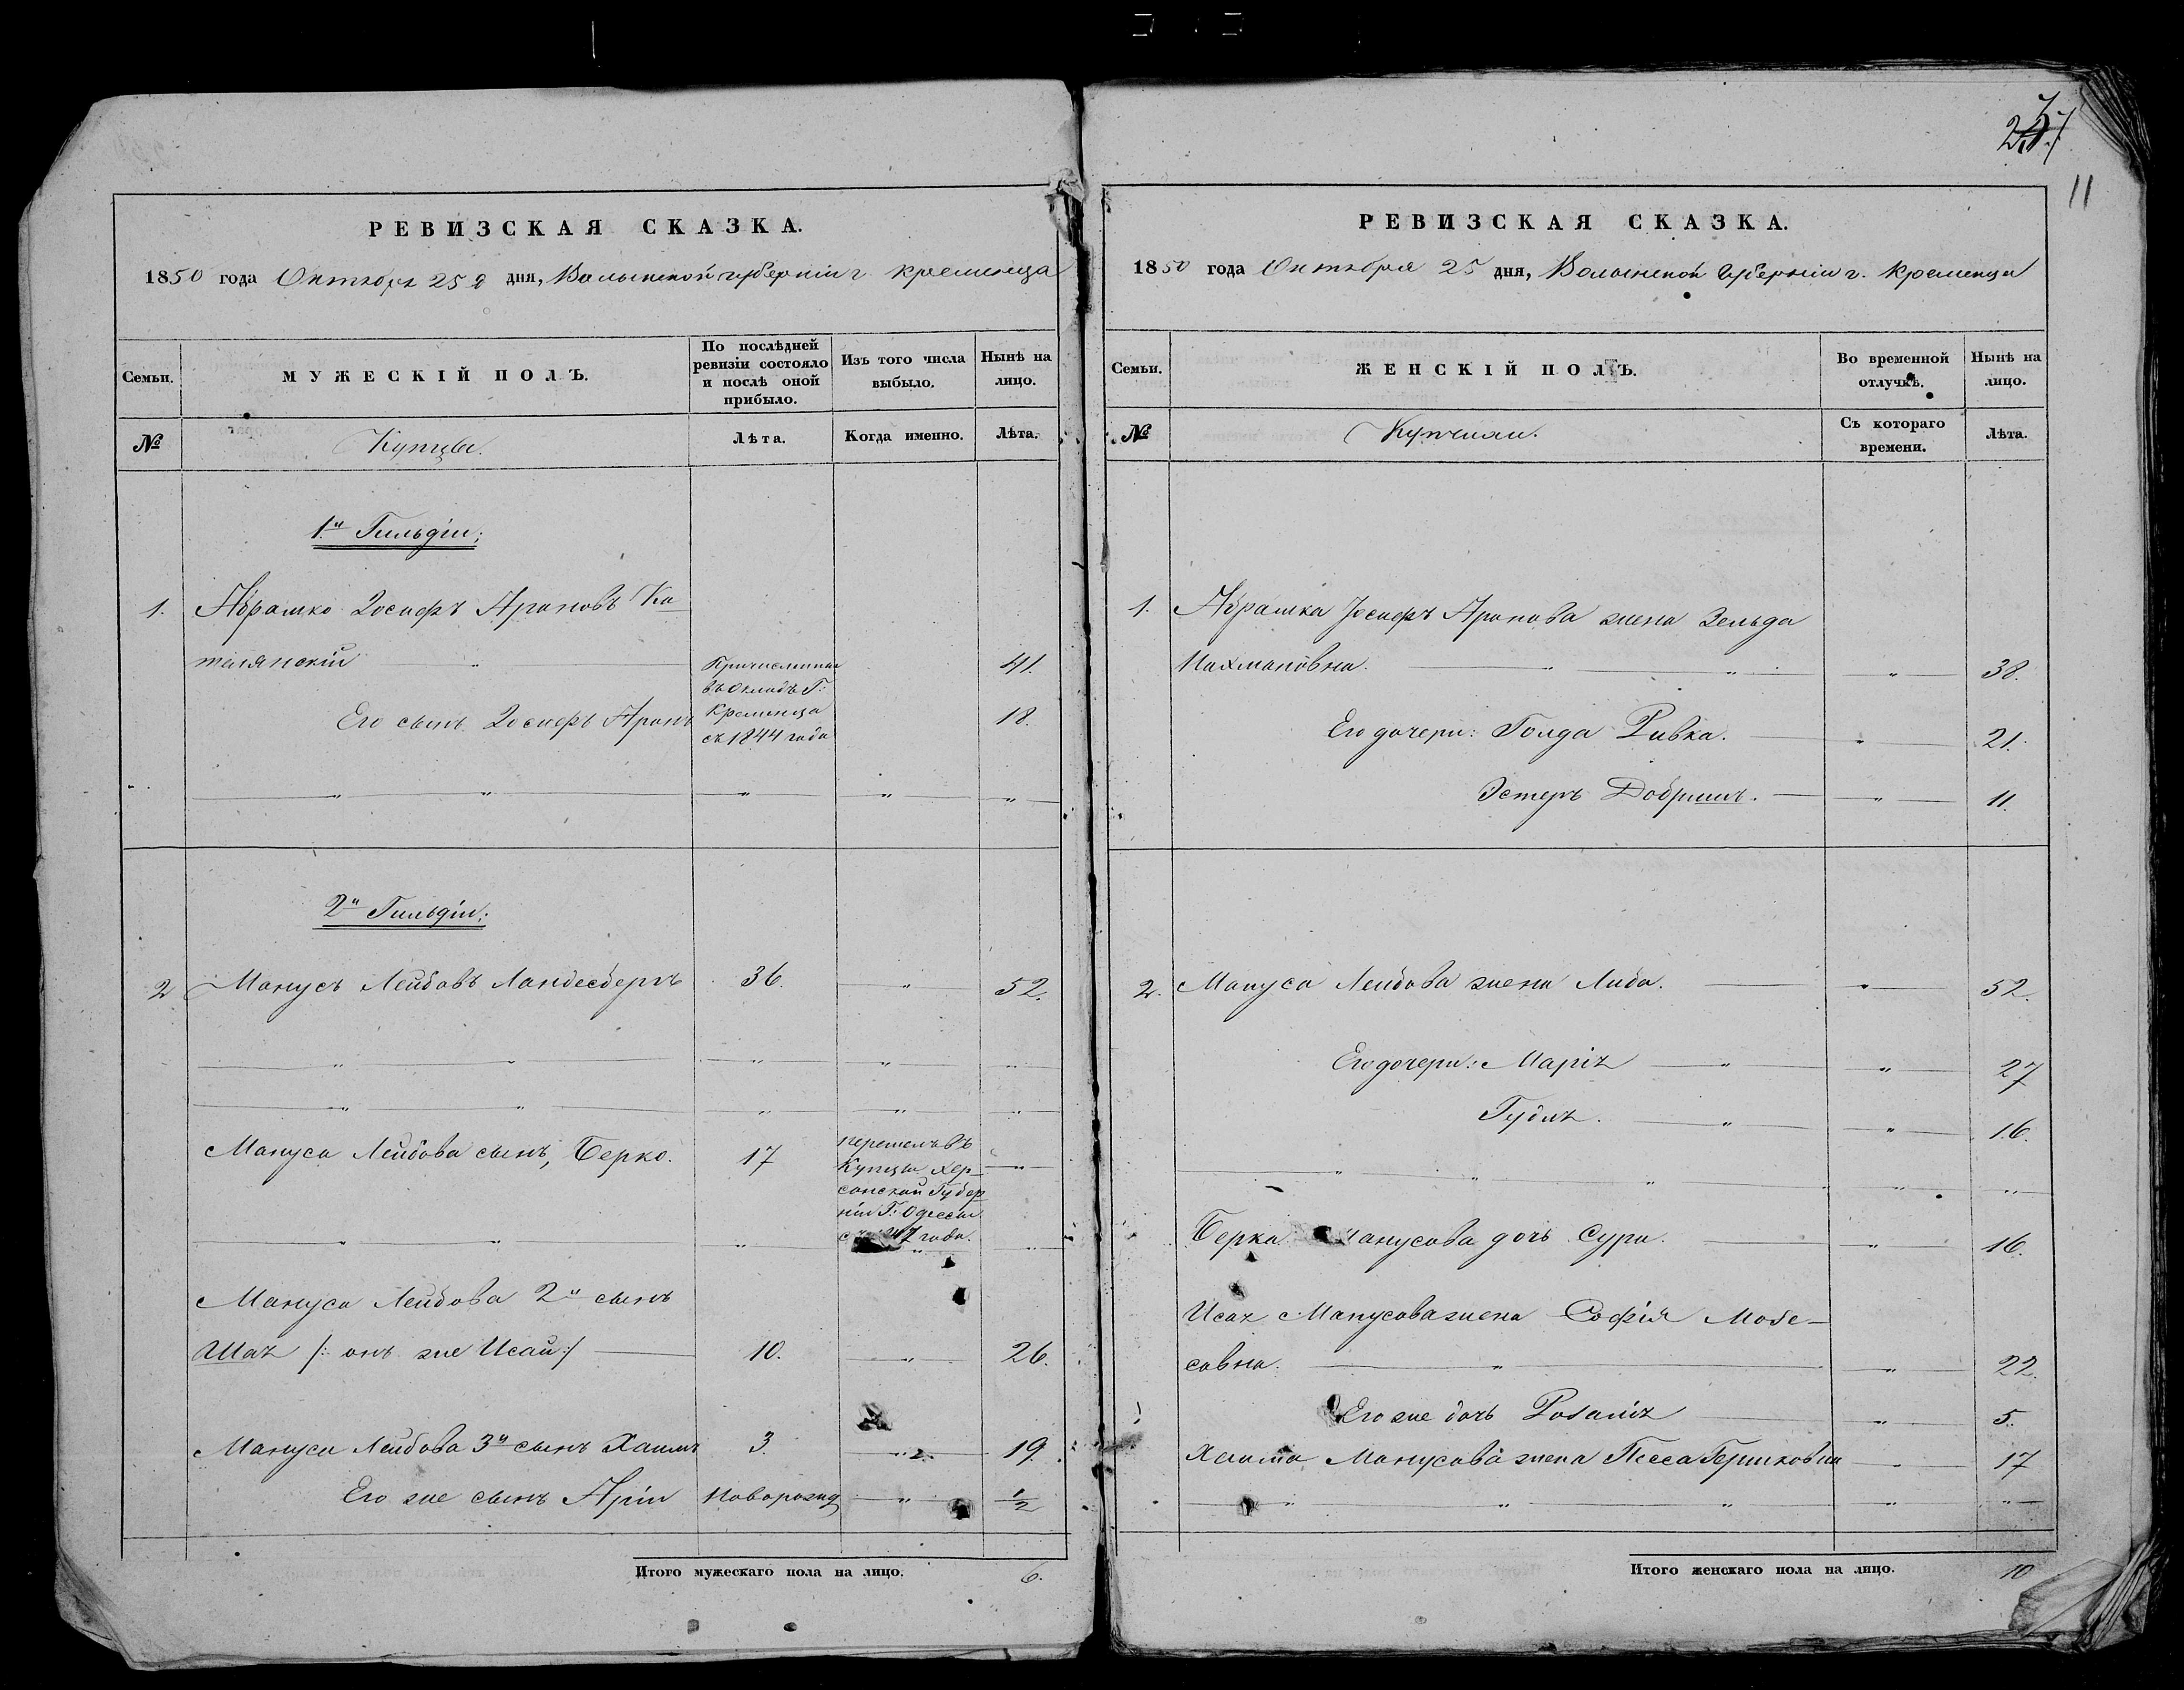 257
11
РЕВИЗСКАЯ СКАЗКА.
1850 года Октября 25 дня, Волынской губерніи г. Кременца
Семьи.
МУЖЕСКІЙ ПОЛЪ.
По послѣдней ревизіи состояло и послѣ оной прибыло.
Изъ того числа выбыло.
Нынѣ на лицо.
№
Купцы.
Лѣта.
Когда именно.
Лѣта.
1й Гильдіи;
1. Абрашко Іосифъ Ароновъ Ка
телянскій " 41.
Причисленны
въ окладъ Г:
Кременца
съ 1844 года
Его сынъ Іосифъ Аронъ 18.
" " " " "
2й Гильдіи;
2 Манусъ Лейбовъ Ландесбергъ 36. " 52.
" " " " "
" " " " "
Мануса Лейбова сынъ, Берко. 17 "
перешелъ въ
Купцы Хер-
сонской Губер
ніи Г: Одессы
года.
" " " " "
Мануса Лейбова 2й сынъ
Шая /: онъ же Исай :/ 10. " 26.
Мануса Лейбова 3й сынъ Хаимъ 3. " 19.
Его же сынъ Арія Новорожд " 1/2
Итого мужескаго пола на лицо. 6.
РЕВИЗСКАЯ СКАЗКА.
1850 года Октября 25 дня, Волынской Губерніи г. Кременца
Семьи.
ЖЕНСКІЙ ПОЛЪ.
Во временной отлучкѣ.
Нынѣ на лицо.
№
Купчихи.
Съ котораго времени.
Лѣта.
1. Абрашка Іосифъ Аронова жена Зельда
Нахмановна. " " " 38.
Его дочери: Голда Ривка. " 21.
Эстеръ Добришъ. " 11.
2. Мануса Лейбова жена Либа. " 52.
Его дочери: Марія " " 27
Гудля. " " 16.
" " " " "
Берка Манусова дочь Сура. " 16.
Исая Манусова жена Софія Мове-
совна. " " 22.
Его же дочь Розалія " 5.
Хаима Манусова жена Песса Гершковна 17
" " " " "
Итого женскаго пола на лицо. 10